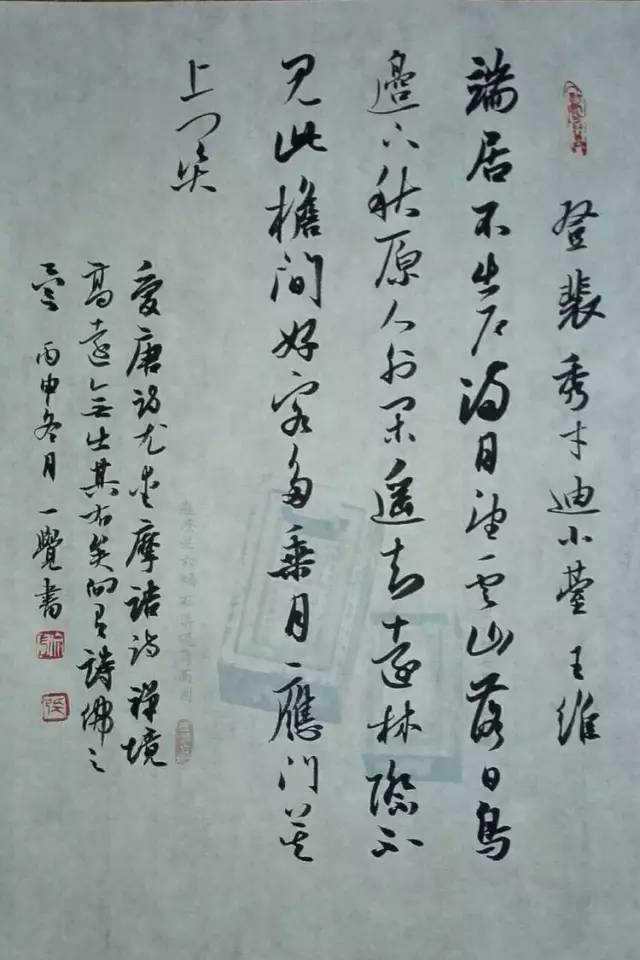 登裴秀才迪小臺 王維
端居不出户满目望云山落日鳥
邊下秋原人外闲遥知遠林際不
见此檐间好客多乘月應门莫
上关
愛唐诗尤愛摩詰诗禅境
高遠無出其右矣有詩佛之
誉 丙申冬月 一覺書